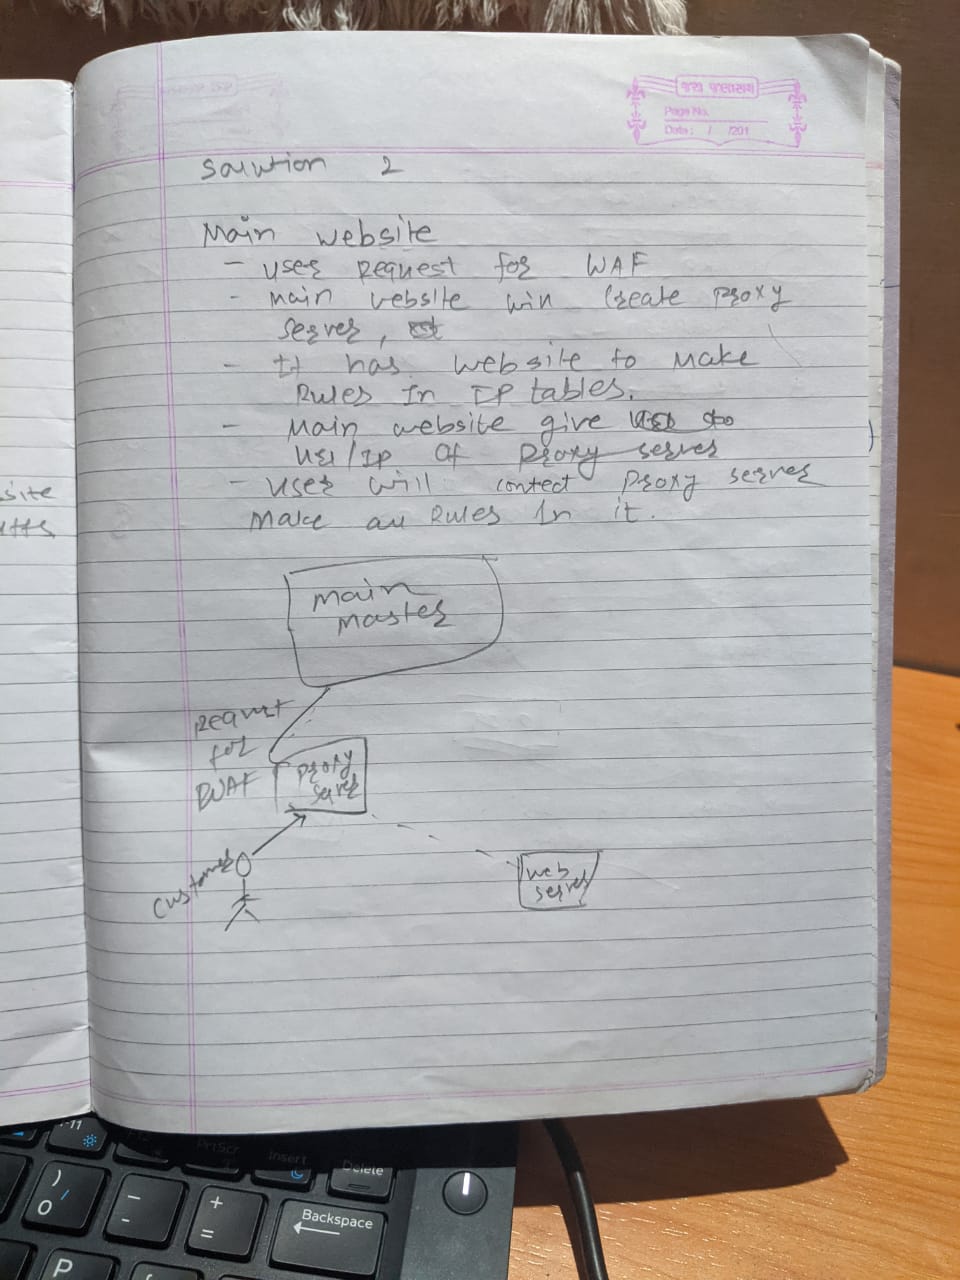 જય જલારામ
Page No.
Date: / /201
Solution 2
Main website
- User Request for WAF
- main website will Create Proxy
Server,
- It has website to Make
Rules In IP tables.
- Main website give
URL/IP Of Proxy server
- User will contect Proxy server
Make all Rules In it.
site
Main
Master
Request
for
WAF
Proxy
Server
Customer
web
server
F11
PrtScr
Insert
Delete
)
0
-
-
+
=
Backspace
P